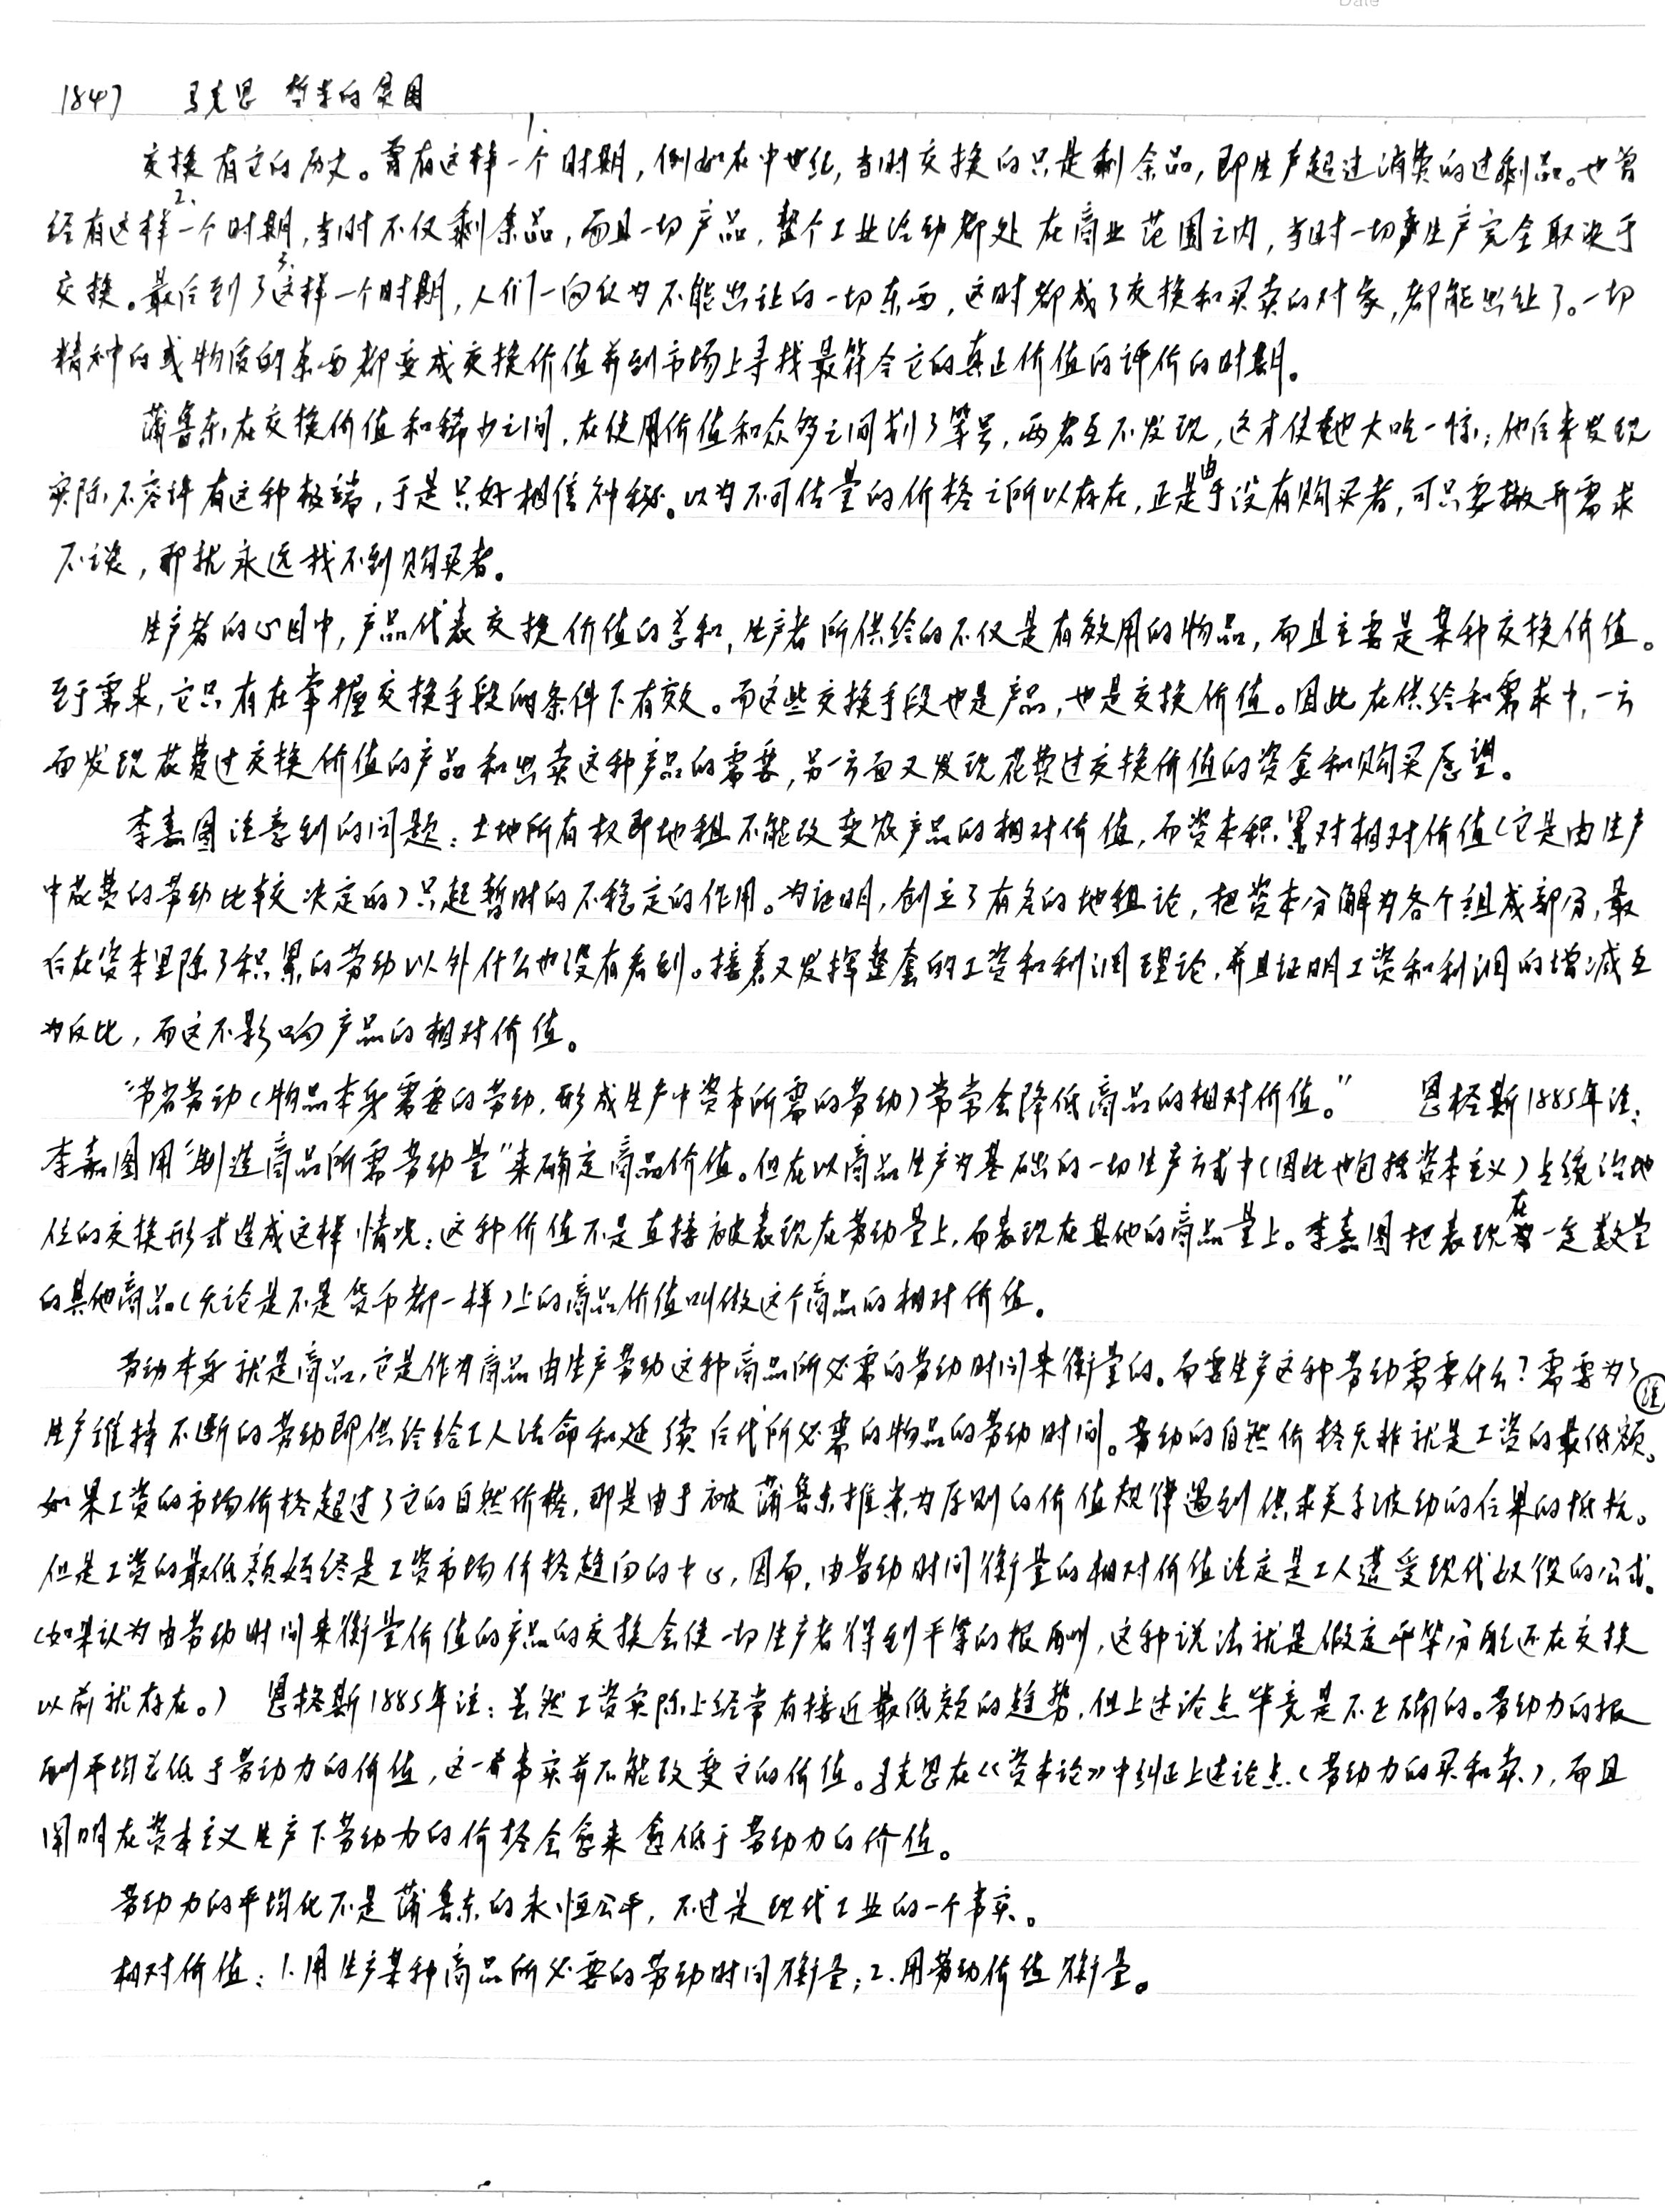 Date
1847 马克思 哲学的贫困
交换有它的历史。曾有这样一个时期，例如在中世纪，当时交换的只是剩余品，即生产超过消费的过剩品。也曾
经有这样一个时期，当时不仅剩余品，而且一切产品，整个工业活动都处在商业范围之内，当时一切生产完全取决于
交换。最后到了这样一个时期，人们一向认为不能出让的一切东西，这时都成了交换和买卖的对象，都能出让了。一切
精神的或物质的东西都变成交换价值并到市场上寻找最符合它的真正价值的评价的时期。
蒲鲁东在交换价值和稀少之间，在使用价值和众多之间划了等号，两者互不发现，这才使他大吃一惊；他后来发现
实际不容许有这种极端，于是只好相信神秘。以为不可估量的价格之所以存在，正是由于没有购买者，可只要撇开需求
不谈，那就永远找不到购买者。
生产者的心目中，产品代表交换价值的总和，生产者所供给的不仅是有效用的物品，而且主要是某种交换价值。
至于需求，它只有在掌握交换手段的条件下有效。而这些交换手段也是产品，也是交换价值。因此在供给和需求中，一方
面发现花费过交换价值的产品和出卖这种产品的需要，另一方面又发现花费过交换价值的资金和购买愿望。
李嘉图注意到的问题：土地所有权即地租不能改变农产品的相对价值，而资本积累对相对价值（它是由生产
中花费的劳动比较决定的）只起暂时的不稳定的作用。为证明，创立了有名的地租论，把资本分解为各个组成部分，最
后在资本里除了积累的劳动以外什么也没有看到。接着又发挥整套的工资和利润理论，并且证明工资和利润的增减互
为反比，而这不影响产品的相对价值。
“节省劳动（物品本身需要的劳动，形成生产中资本所需的劳动）常常会降低商品的相对价值。” 恩格斯1885年注：
李嘉图用“制造商品所需劳动量”来确定商品价值。但在以商品生产为基础的一切生产方式中（因此也包括资本主义）占统治地
位的交换形式造成这样情况：这种价值不是直接被表现在劳动量上，而表现在其他的商品量上。李嘉图把表现在一定数量
的其他商品（无论是不是货币都一样）上的商品价值叫做这个商品的相对价值。
劳动本身就是商品，它是作为商品由生产劳动这种商品所必需的劳动时间来衡量的。而要生产这种劳动需要什么？需要为了
生产维持不断的劳动即供给给工人活命和延续后代所必需的物品的劳动时间。劳动的自然价格无非就是工资的最低额。注
如果工资的市场价格超过了它的自然价格，那是由于被蒲鲁东推崇为原则的价值规律遇到供求关系波动的后果的抵抗。
但是工资的最低额始终是工资市场价格趋向的中心，因而，由劳动时间衡量的相对价值注定是工人遭受现代奴役的公式。
（如果认为由劳动时间来衡量价值的产品的交换会使一切生产者得到平等的报酬，这种说法就是假定平等分配还在交换
以前就存在。） 恩格斯1885年注：虽然工资实际上经常有接近最低额的趋势，但上述论点毕竟是不正确的。劳动力的报
酬平均总低于劳动力的价值，这一事实并不能改变它的价值。马克思在《资本论》中纠正上述论点（劳动力的买和卖），而且
阐明在资本主义生产下劳动力的价格会愈来愈低于劳动力的价值。
劳动力的平均化不是蒲鲁东的永恒公平，不过是现代工业的一个事实。
相对价值：1.用生产某种商品所必要的劳动时间衡量；2.用劳动价值衡量。